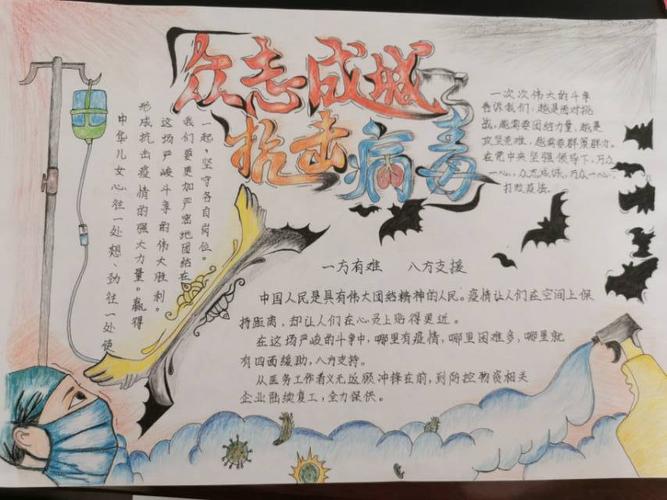 众志成城
抗击病毒
中华儿女心往一处想、劲往一处使
形成抗击疫情的强大力量。赢得
这场严峻斗争的伟大胜利。
我们要更加严密地团结在
一起,坚守各自岗位。
一次次伟大的斗争
告诉我们:越是面对挑
战,越需要团结力量,越是
攻坚克难,越需要群策群力。
在党中央坚强领导下,万众
一心,众志成城,万众一心,
打败疫情。
一方有难 八方支援
中国人民是具有伟大团结精神的人民。疫情让人们在空间上保
持距离,却让人们在心灵上贴得更近。
在这场严峻的斗争中,哪里有疫情,哪里困难多,哪里就
有四面缓助,八方支持。
从医务工作者义无反顾冲锋在前,到防控物资相关
企业陆续复工,全力保供。